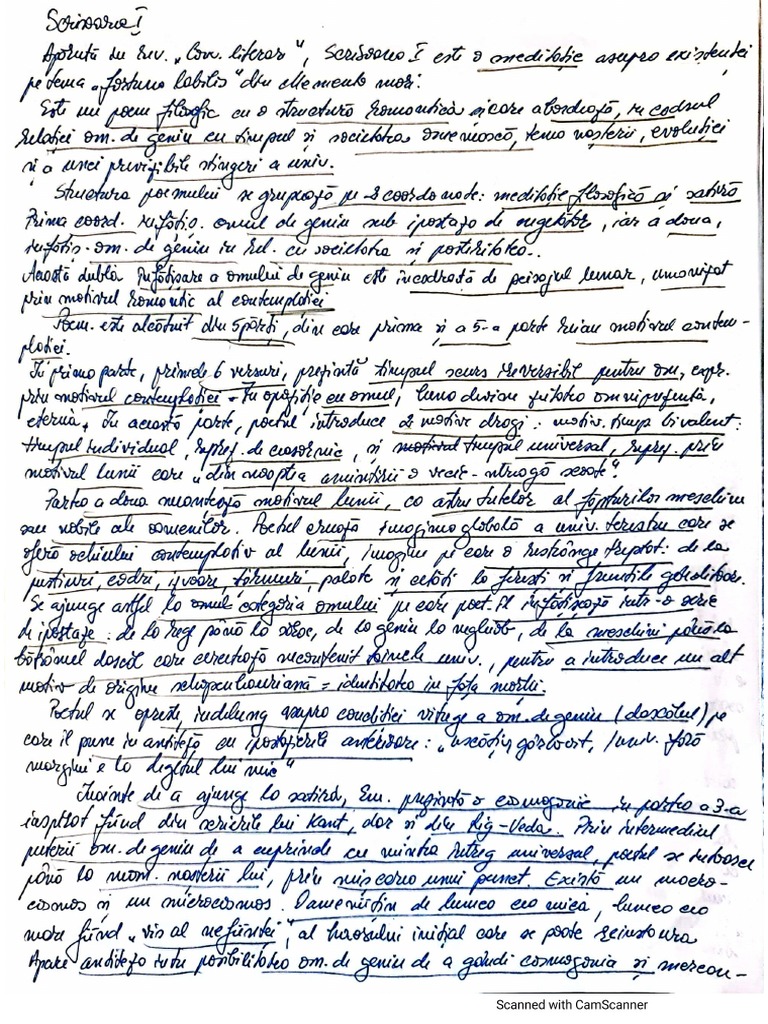 Scrisoarea I
Apărută în rev. „Conv. literare", Scrisoarea I este o meditație asupra existenței
pe tema „fortuna labilis" din Memento mori.
Este un poem filozofic cu o structură romantică și care abordează, în cadrul
relației om. de geniu cu timpul și societatea omenească, tema nașterii, evoluției
și a unei previzibile stingeri a univ.
Structura poemului se grupează pe 2 coordonate: meditație filosofică și satiră
Prima coord. înfățiș. omul de geniu sub ipostaza de cugetător, iar a doua,
înfățiș. om. de geniu în rel. cu societatea și posteritatea.
Această dublă înfățișare a omului de geniu este încadrată de peisajul lunar, umanizat
prin motivul romantic al contemplației
Poem. este alcătuit din 5 părți, din care prima și a 5-a parte reiau motivul contem-
plației.
În prima parte, primele 6 versuri, prezintă timpul scurs ireversibil pentru om, expr.
prin motivul contemplației. În opoziție cu omul, luna devine ființa omniprezentă,
eternă. În această parte, poetul introduce 2 motive dragi: motiv. timp bivalent:
timpul individual, reprez. de ceasornic, și motivul timpul universal, reprez. prin
motivul lunii care „din noaptea amintirii o vecie-ntreagă scoate".
Partea a doua montează motivul lunii, ca astru tutelar al făpturilor meschine
sau nobile ale oamenilor. Poetul crează imaginea globală a univ. terestru care se
oferă ochiului contemplativ al lunii, imagine pe care o restrânge treptat: de la
pustiuri, codri, izvoare, țărmuri, palate și cetăți la ferești și frunțile gânditoare.
Se ajunge astfel la omul categoria omului pe care poet. îl înfățișează într-o serie
de ipostaze: de la rege până la sărac, de la geniu la neghiob, de la meschini până la
bătrânul dascăl care cercetează necontenit tainele univ., pentru a introduce un alt
motiv de origine schopenhauriană = identitatea în fața morții.
Poetul se oprește îndelung asupra condiției vitrege a om. de geniu (dascălul) pe
care îl pune în antiteză cu ipostazele anterioare: „uscățiv, gârbovit, / univ. fără
margini e în degetul lui mic"
Înainte de a ajunge la satiră, Em. prezintă o cosmogonie în partea a 3-a
inspirat fiind din scrierile lui Kant, dar și din Rig-Veda. Prin intermediul
puterii om. de geniu de a cuprinde cu mintea întreg universul, poetul se întoarce
până la mom. nașterii lui, prin mișcarea unui punct. Există un macro-
cosmos și un microcosmos. Oameni din de lumea cea mică, lumea cea
mare fiind „vis al neființei", al haosului inițial care se poate reinstaura
Apare antiteza între posibilitatea om. de geniu de a gândi cosmogonia și mercan-
Scanned with CamScanner